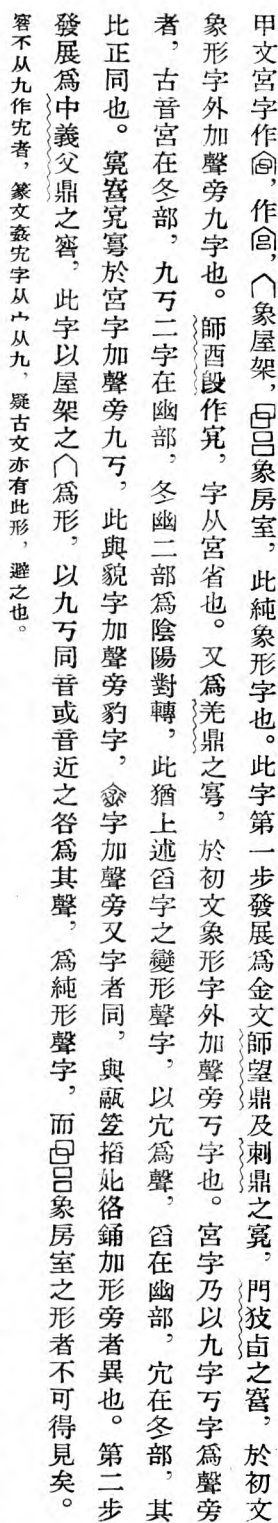 甲文宮字作，作，宀象屋架，吕象房室，此純象形字也。此字第一步發展爲金文師望鼎及刺鼎之寬，門㺇卣之寣，於初文
象形字外加聲旁九字也。師酉𣪘作宄，字从宮省也。又爲羌鼎之㝛，於初文象形字外加聲旁丂字也。宮字乃以九字丂字爲聲旁
者，古音宮在冬部，九丂二字在幽部，冬幽二部爲陰陽對轉，此猶上述㿝字之變形聲字，以宂爲聲，㿝在幽部，宂在冬部，其
比正同也。於宮字加聲旁九丂，此與貌字加聲旁豹字，字加聲旁又字者同，與加形旁者異也。第二步
發展爲中義父鼎之窖，此字以屋架之宀爲形，以九丂同音或音近之咎爲其聲，爲純形聲字，而吕象房室之形者不可得見矣。
窖不从九作宄者，篆文姦宄字从宀从九，疑古文亦有此形，避之也。